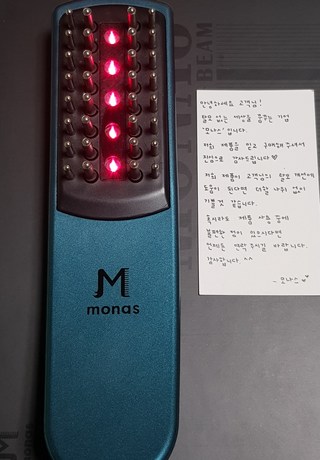 BEAM
안녕하세요 고객님!
탈모 없는 세상을 꿈꾸는 기업
"모나스" 입니다.
저희 제품을 믿고 구매해 주셔서
진심으로 감사드립니다♡
저희 제품이 고객님의 탈모 개선에
도움이 된다면 더할 나위 없이
기쁠것 같습니다.
혹시라도 제품 사용 중에
불편한 점이 있으시다면
언제든 연락 주시길 바랍니다.
감사합니다 ^^
- 모나스 ♡
M
monas